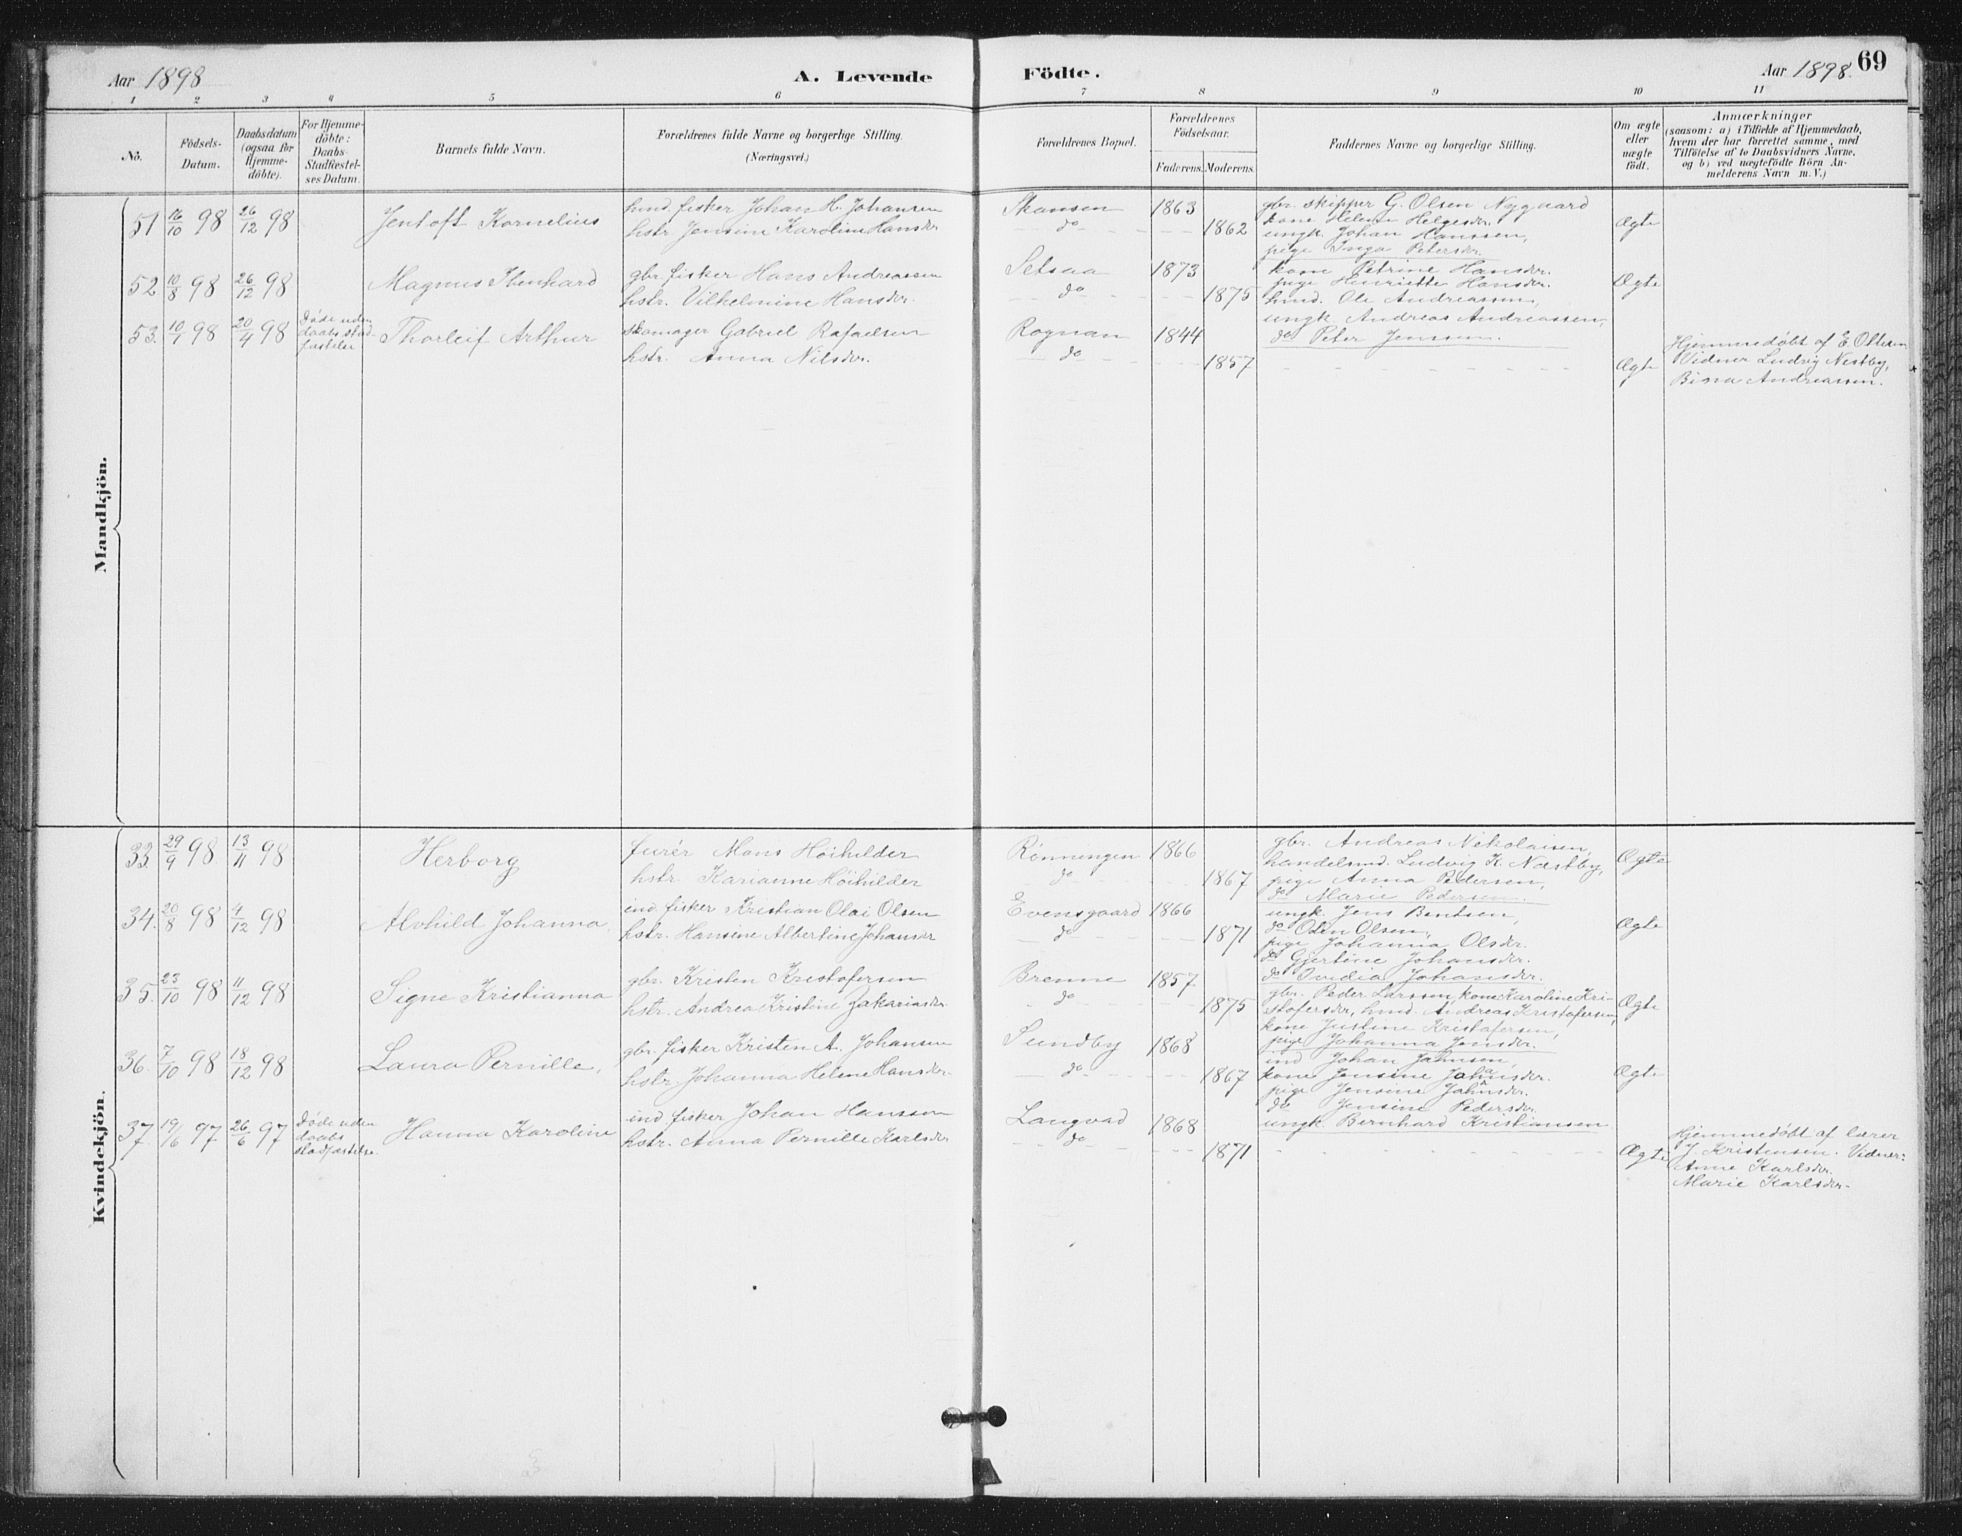 Aar 1898
A. Levende Födte.
Aar 1898. 69
1 2 3 4 5 6 7 8 9 10 11
No.
Födsels-Datum.
Daabsdatum (ogsaa for Hjemme-döbte).
For Hjemme-döbte: Daabs-Stadfæstel-ses Datum.
Barnets fulde Navn.
Forældrenes fulde Navne og borgerlige Stilling. (Næringsvei.)
Forældrenes Bopæl.
Forældrenes Födselsaar.
Faderens. Moderens.
Faddernes Navne og borgerlige Stilling.
Om ægte eller uægte födt.
Anmærkninger
(saasom: a) i Tilfælde af Hjemmedaab, hvem der har forrettet samme, med Tilföielse af to Daabsvidners Navne, og b) ved uægtefödte Börn An-melderens Navn m. V.)
Mandkjön.
51 16/10 98 26/12 98 Jentoft Kornelius
hmd. fisker Johan H. Johansen
hstr. Jensine Karoline Hansdr.
Skansen 1863
do 1862
gbr. skipper G. Olsen Nygaard
kone Helena Helgesdr.
ungk. Johan Hanssen,
pige Inga Petersdr.
Ægte
52 10/8 98 26/12 98 Magnus Ibenhard
gbr. fisker Hans Andreassen
hstr. Vilhelmine Hansdr.
Setsaa 1873
do 1875
kone Petrine Hansdr.
pige Henriette Hansdr.
hmd. Ole Andreassen,
ungk. Andreas Andreassen,
do Peter Jenssen.
Ægte
53. 10/1 98 20/4 98 Døde uden daabs stadfæstelse Thorleif Arthur
skomager Gabriel Rafaelsen
hstr. Anna Nilsdr.
Rognan 1844
do 1857
Ægte
Hjemmedøbt af E Oltesen
Vidner Ludvig Nestby,
Bina Andreassen.
Kvindekjön.
33 29/9 98 13/11 98 Herborg
furér Mons Höihilder
hstr. Karianne Höihilder
Rönningen 1866
do 1867
gbr. Andreas Nikolaisen,
handelsmd. Ludvig K. Næstby,
pige Anna Pedersen,
do Marie Pedersen.
Ægte
34. 20/8 98 4/12 98 Alvhild Johanna
ind. fisker Kristian Olai Olsen
hstr. Hansine Albertine Johansdr
Evensgaard 1866
do 1871
ungk. Jens Bentsen,
do Odin Olsen,
pige Johanna Olsdr.
do Gjertine Johansdr.
do Ovidia Johansdr.
Ægte
35. 23/10 98 11/12 98 Signe Kristianna
gbr. Kristen Kristofersen
hstr. Andrea Kristine Zakariasdr.
Brenne 1857
do 1875
gbr. Peder Larssen, kone Karoline Kri-
stofersdr, hmd. Andreas Kristofersen,
kone Justine Kristofersen,
pige Johanna Jensdr.
Ægte
36. 7/10 98 18/12 98 Laura Pernille,
gbr. fisker Kristen A. Johansen
hstr. Johanna Helene Hansdr.
Sundby 1868
do 1867
ind Johan Jahnsen
kone Jensine Johansdr.
pige Jensine Johansdr.
do Jensine Pedersdr.
ungk. Bernhard Kristiansen
Ægte
37. 19/6 97 26/6 97 Døde uden daabs stadfæstelse. Hanna Karoline
ind fisker Johan Hanssen
hstr. Anna Pernille Karlsdr
Langvad 1868
do 1871
Ægte
Hjemmedøbt af lærer
J. Kristensen. Vidner:
Anne Karlsdr.
Marie Karlsdr.